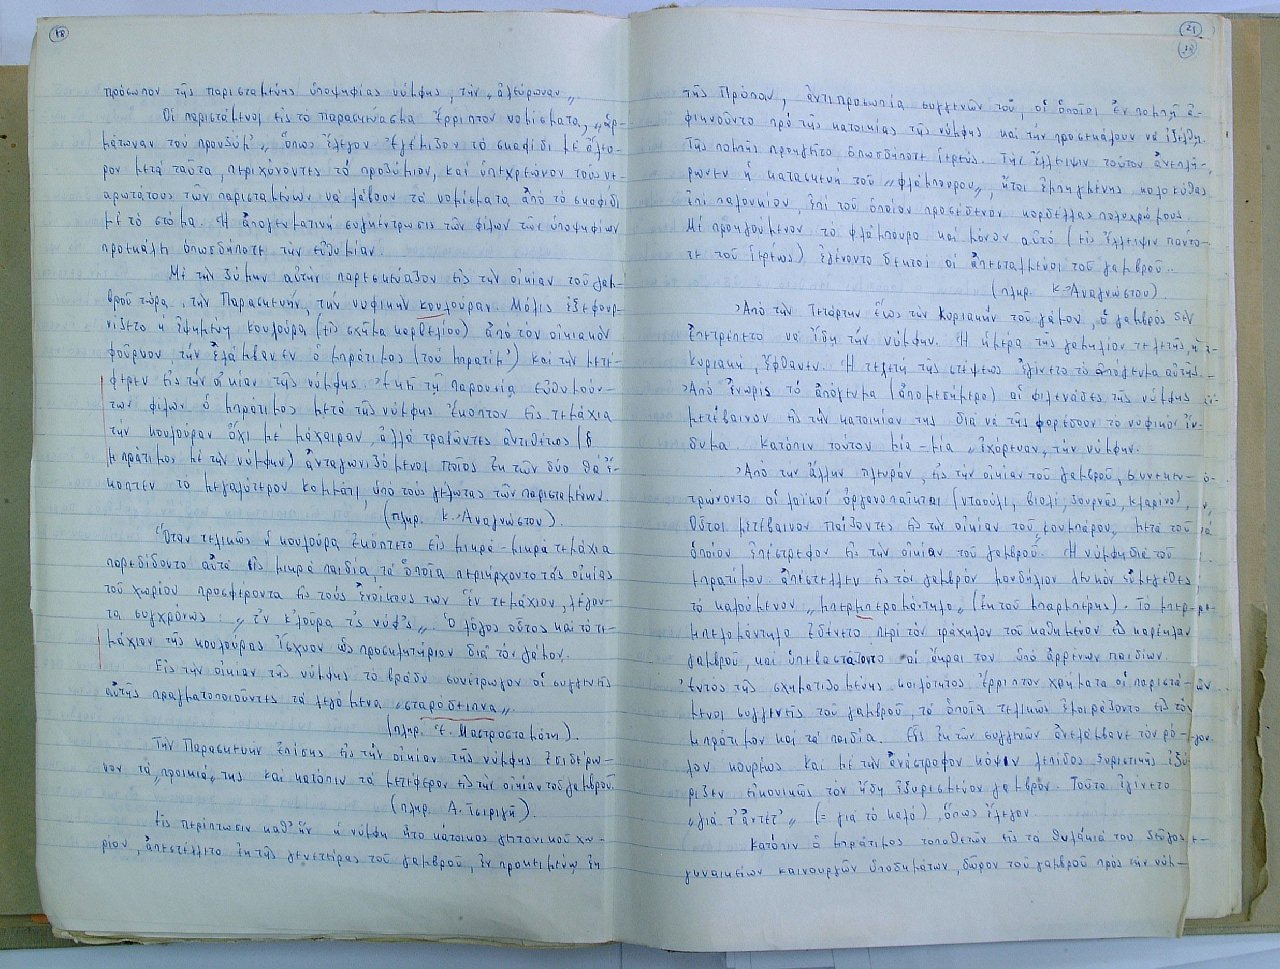 18
πρόσωπον τῆς παρισταμένης ὑποψηφίας νύμφης, τὴν „ἀλεύρωναν„
Οἱ παριστάμενοι εἰς τὸ παρασκεύασμα ἔρριπτον νομίσματα, „ἀρ-
μάτωναν τοὺ προυζύμ'„ ὅπως ἔλεγον. Ἐγέμιζον τὸ σκαφίδι μὲ ἄλευ-
ρον μετὰ ταῦτα, περιχύνοντες τὸ προζύμιον, καὶ ὑπεχρέωνον τοὺς νε-
αρωτάτους τῶν παρισταμένων νὰ λάβουν τὰ νομίσματα ἀπὸ τὸ σκαφίδι
μὲ τὸ στόμα. Ἡ ἀπογευματινὴ συγκέντρωσις τῶν φίλων τῶν ὑποψηφίων
προεκάλει ὁπωσδήποτε τὴν εὐθυμίαν.
Μὲ τὴν ζύμην αὐτὴν παρεσκεύαζον εἰς τὴν οἰκίαν τοῦ γαμ-
βροῦ τώρα, τὴν Παρασκευήν, τὴν νυφικὴν κουλούραν. Μόλις ἐξεφουρ-
νίζετο ἡ ἐψημένη κουλούρα (εἰς σχῆμα καρβελίου) ἀπὸ τὸν οἰκιακὸν
φοῦρνον τὴν ἐλάμβανεν ὁ μπράτιμος (τοὺ μπρατίμ') καὶ τὴν μετέ-
φερεν εἰς τὴν οἰκίαν τῆς νύμφης. Ἐκεῖ τῇ παρουσίᾳ εὐθυμούν-
των φίλων ὁ μπράτιμος μετὰ τῆς νύμφης ἔκοπτον εἰς τεμάχια
τὴν κουλούραν ὄχι μὲ μάχαιραν, ἀλλὰ τραβῶντες ἀντιθέτως (ὁ
μπράτιμος μὲ τὴν νύμφην) ἀνταγωνιζόμενοι ποῖος ἐκ τῶν δύο θὰ ἔ-
κοπτεν τὸ μεγαλύτερον κομμάτι, ὑπὸ τοὺς γέλωτας τῶν παρισταμένων.
(πληρ. Κ. Ἀναγνώστου).
Ὅταν τελικῶς ἡ κουλούρα ἐκόπτετο εἰς μικρὰ-μικρὰ τεμάχια
παρεδίδοντο αὐτὰ εἰς μικρὰ παιδιά, τὰ ὁποῖα περιήρχοντο τὰς οἰκίας
τοῦ χωρίου προσφέροντα εἰς τοὺς ἐνοίκους των ἓν τεμάχιον, λέγον-
τα συγχρόνως: „τ'ν κ'λοῦρα τ'ς νύφ'ς„. Ὁ λόγος οὗτος καὶ τὸ τε-
μάχιον τῆς κουλούρας ἴσχυον ὡς προσκλητήριον διὰ τὸν γάμον.
Εἰς τὴν οἰκίαν τῆς νύμφης τὸ βράδυ συνέτρωγον οἱ συγγενεῖς
αὐτῆς πραγματοποιοῦντες τὰ λεγόμενα „σταρόδειπνα„.
(πληρ. Ε. Μαστροσταμάτη).
Τὴν Παρασκευὴν ἐπίσης εἰς τὴν οἰκίαν τῆς νύμφης ἐσιδέρω-
νον τὰ „προικιά„ της καὶ κατόπιν τὰ μετέφερον εἰς τὴν οἰκίαν τοῦ γαμβροῦ.
(πληρ. Α. Τσιριγῆ).
Εἰς περίπτωσιν καθ' ἣν ἡ νύμφη ἦτο κάτοικος γειτονικοῦ χω-
ρίου, ἀπεστέλλετο ἐκ τῆς γενετείρας τοῦ γαμβροῦ, ἐν προκειμένῳ ἐκ
21
19
τῆς Πρόπαν, ἀντιπροσωπία συγγενῶν τοῦ, οἱ ὁποῖοι ἐν πομπῇ ἀ-
φικνοῦντο πρὸ τῆς κατοικίας τῆς νύμφης καὶ τὴν προσεκάλουν νὰ ἐξέλθῃ.
Τῆς πομπῆς προηγεῖτο ὁπωσδήποτε ἱερεύς. Τὴν ἔλλειψιν τούτου ἀνεπλή-
ρωνεν ἡ κατασκευὴ τοῦ „φλάμπουρου„, ἤτοι ἐμπηγμένης κολοκύθας
ἐπὶ παλουκίου, ἐπὶ τοῦ ὁποίου προσέδενον κορδέλλας πολυχρώμους.
Μὲ προηγούμενον τὸ φλάμπουρο καὶ μόνον αὐτὸ (εἰς ἔλλειψιν πάντο-
τε τοῦ ἱερέως) ἐγένοντο δεκτοὶ οἱ ἀπεσταλμένοι τοῦ γαμβροῦ.
(πληρ. Κ. Ἀναγνώστου)
Ἀπὸ τὴν Τετάρτην ἕως τὴν Κυριακὴν τοῦ γάμου, ὁ γαμβρὸς δὲν
ἐπετρέπετο νὰ ἴδῃ τὴν νύμφην. Ἡ ἡμέρα τῆς γαμηλίου τελετῆς, ἡ
Κυριακή, ἔφθανεν. Ἡ τελετὴ τῆς στέψεως ἐγίνετο τὸ ἀπόγευμα αὐτῆς.
Ἀπὸ ἐνωρὶς τὸ ἀπόγευμα (ἀπομεσήμερο) αἱ φιλενάδες τῆς νύμφης
μετέβαινον εἰς τὴν κατοικίαν της διὰ νὰ τῆς φορέσουν τὸ νυφικὸ ἔν-
δυμα. Κατόπιν τούτου μία-μία „ἐχόρευαν„ τὴν νύμφην.
Ἀπὸ τὴν ἄλλην πλευράν, εἰς τὴν οἰκίαν τοῦ γαμβροῦ, συνεκεν-
τρώνοντο οἱ λαϊκοὶ ὀργανοπαῖκται (νταούλι, βιολί, ζουρνᾶς, κλαρίνο),
Οὗτοι μετέβαινον παίζοντες εἰς τὴν οἰκίαν τοῦ „κουμπάρου„, μετὰ τοῦ
ὁποίου ἐπέστρεφον εἰς τὴν οἰκίαν τοῦ γαμβροῦ. Ἡ νύμφη διὰ τοῦ
μπρατίμου ἀπέστελλεν εἰς τὸν γαμβρὸν μανδήλιον λευκὸν εὐμέγεθες
τὸ καλούμενον „μπερμπερομάντηλο„ (ἐκ τοῦ μπαρμπέρης). Τὸ μπερ-
μπερομάντηλο ἐδένετο περὶ τὸν τράχηλον τοῦ καθημένου εἰς καρέκλαν
γαμβροῦ, καὶ ὑπεβαστάζοντο αἱ ἄκραι του ὑπὸ ἀρρένων παιδίων.
Ἐντὸς τῆς σχηματιζομένης κοιλότητος ἔρριπτον χρήματα οἱ παριστά-
μενοι συγγενεῖς τοῦ γαμβροῦ, τὰ ὁποῖα τελικῶς ἐμοιράζοντο εἰς τὸν
μπράτιμον καὶ τὰ παιδία. Εἷς ἐκ τῶν συγγενῶν ἀνελάμβανε τὸν ρό-
λον κουρέως καὶ μὲ τὴν ἀνάστροφον κόψιν λεπίδος ξυριστικῆς ἐξύ-
ριζεν εἰκονικῶς τὸν ἤδη ἐξυρισμένον γαμβρόν. Τοῦτο ἐγίνετο
„γιὰ τ' ἀντέτ'„ (= γιὰ τὸ καλό), ὅπως ἔλεγον.
Κατόπιν ὁ μπράτιμος τοποθετῶν εἰς τὰ θυλάκιά του ζεῦγος
γυναικείων καινουργῶν ὑποδημάτων, δῶρον τοῦ γαμβροῦ πρὸς τὴν νύμ-